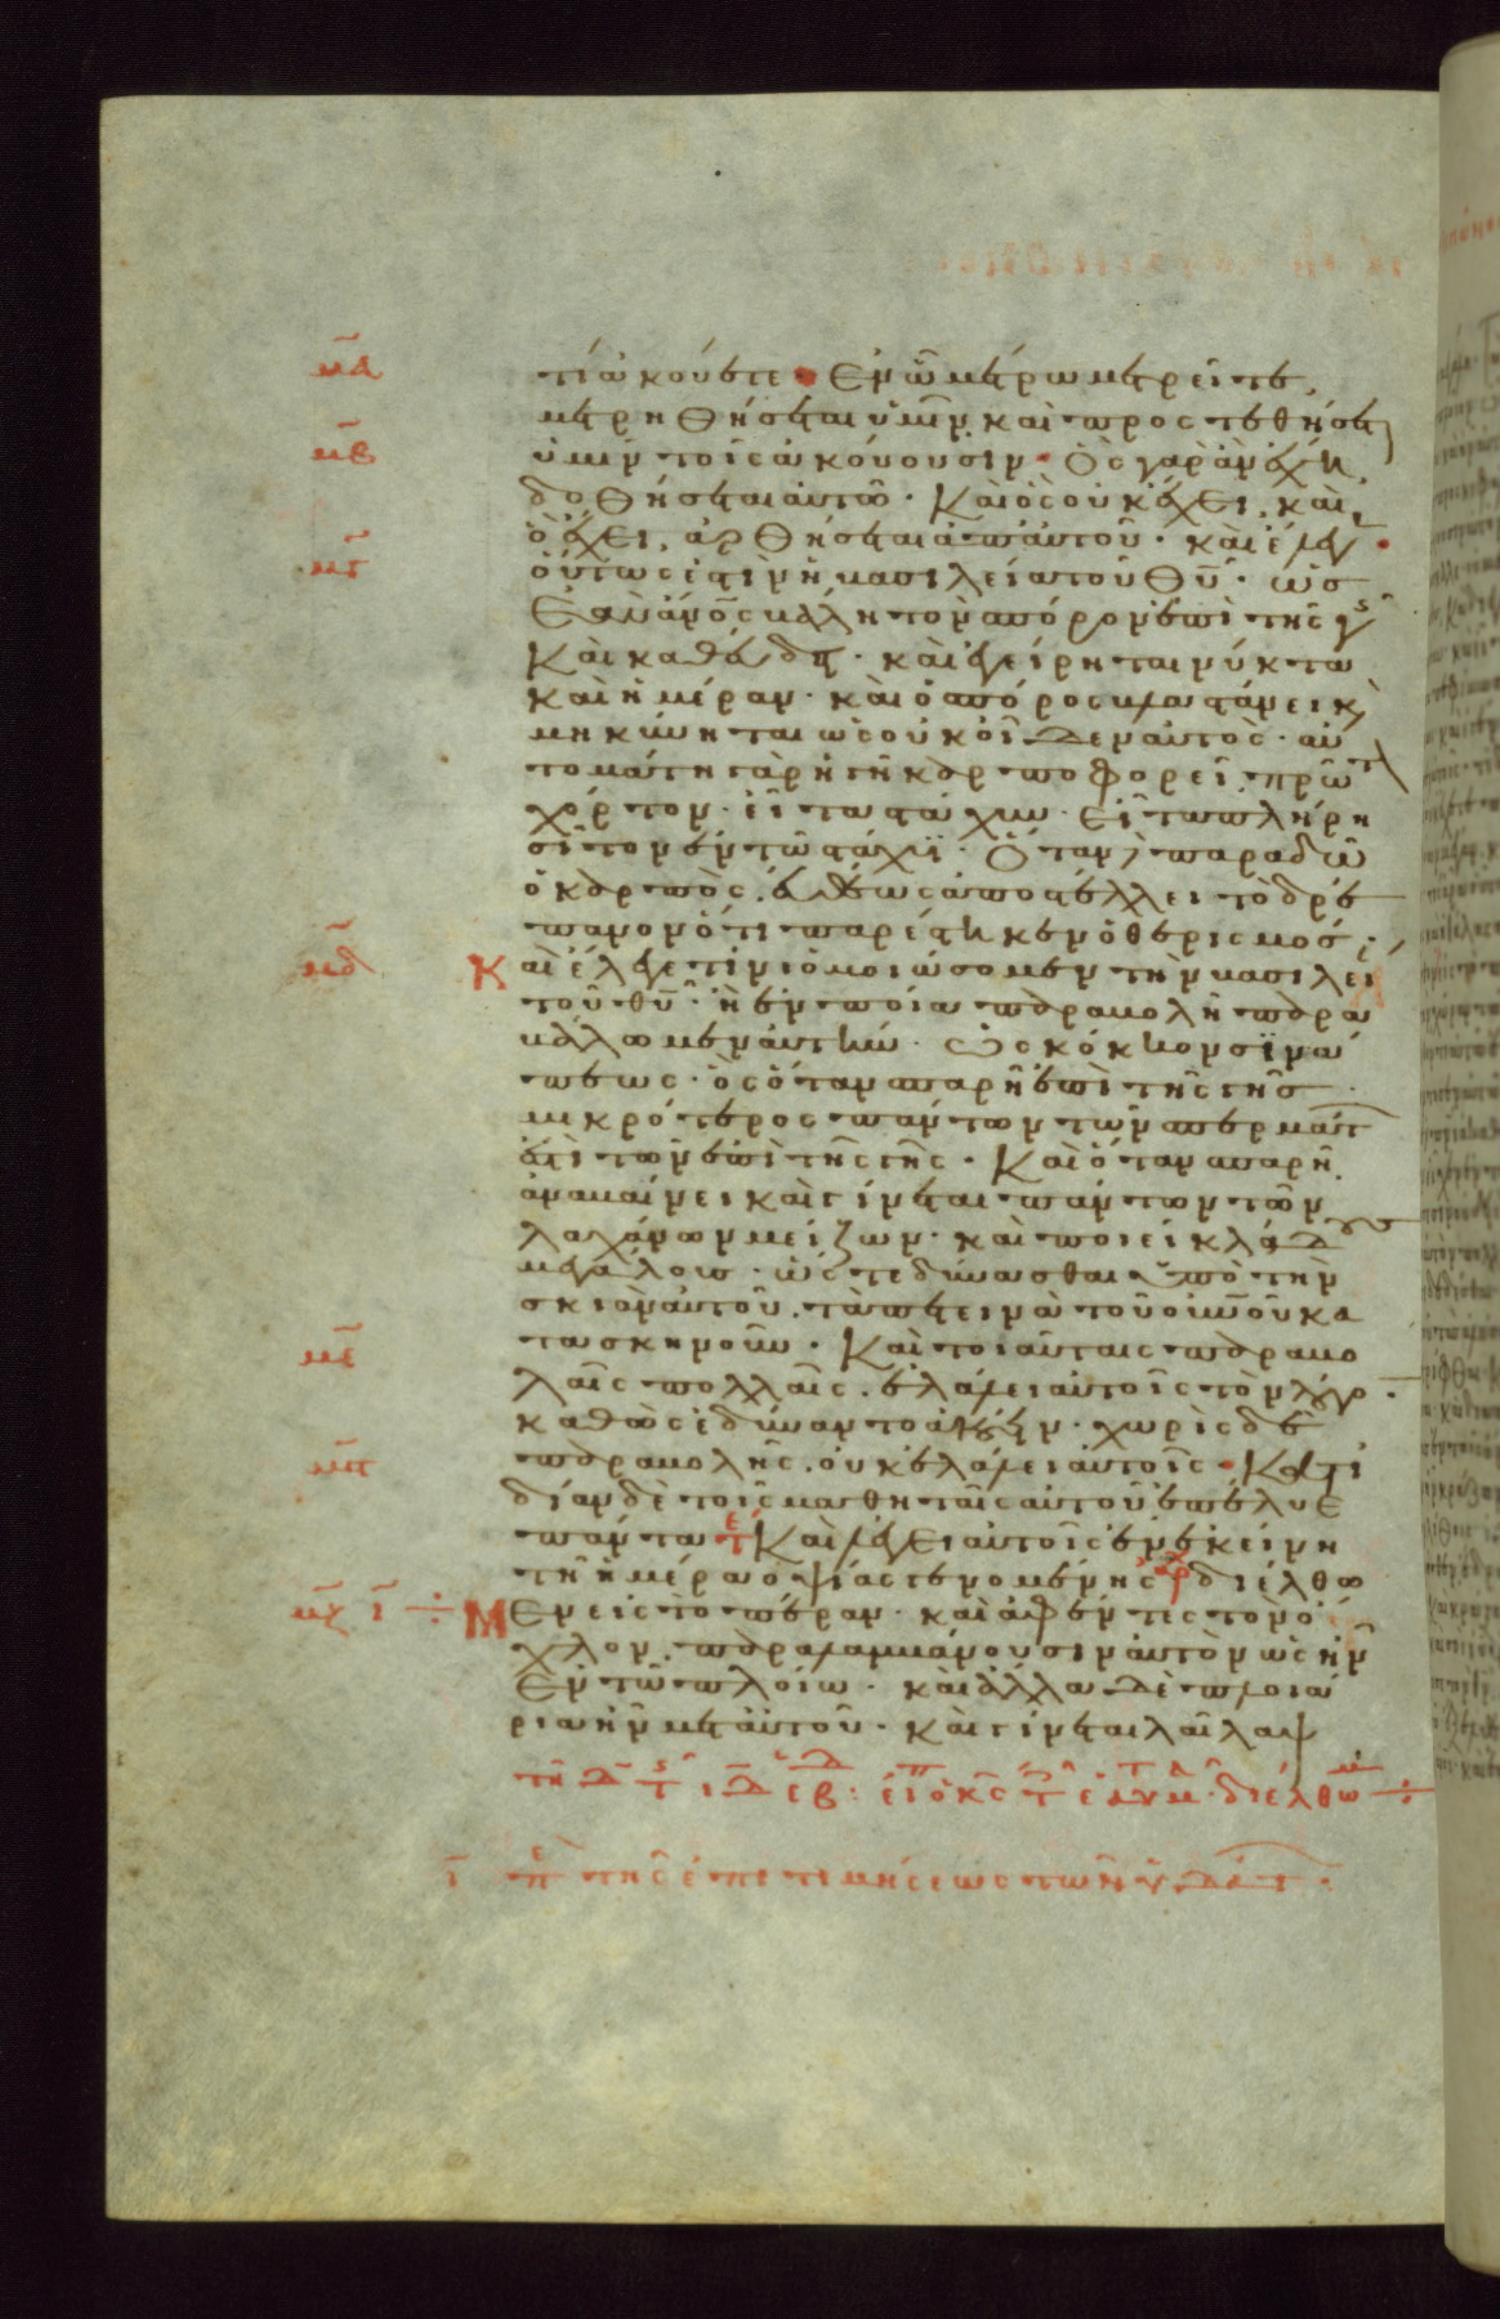 μα τί ἀκούετε · Ἐν ᾧ μέτρω μετρεῖτε,
μετρηθήσεται ὑμῖν. καὶ προστεθήσεται
μβ ὑμῖν τοῖς ἀκούουσιν · Ὃς γὰρ ἂν ἔχη,
δοθήσεται αὐτῶ · Καὶ ὃς οὐκ ἔχει, καὶ
ὃ ἔχει, ἀρθήσεται ἀπ' αὐτοῦ · καὶ ἔλεγ ·
μγ οὕτως ἐστὶν ἡ βασιλεία τοῦ θῡ · ὡσ
ἐὰν ἄνο̄ς βάλη τὸν σπόρον ἐπὶ τῆς γ
Καὶ καθεύδη · καὶ ἐγείρηται νύκτα
καὶ ἡμέραν · καὶ ὁ σπόρος βλαστάνει κ
μηκύνηται ὡς οὐκ οἶδεν αὐτὸς · αὐ
τομάτη γὰρ ἡ γῆ καρποφορεῖ, πρῶτ
χόρτον · εἶτα στάχυν · εἶτα πλήρη
σῖτον ἐν τῶ στάχυϊ · Ὅταν δὲ παραδῶ
ὁ καρπὸς, εὐθέως ἀποστέλλει τὸ δρέ
πανον ὅτι παρέστηκεν ὁ θερισμός ·
μδ Καὶ ἔλεγε τίνι ὁμοιώσομεν τὴν βασιλεί
τοῦ θῡ · ἢ ἐν ποία παραβολῆ παρα
βάλωμεν αὐτήν · Ὡς κόκκον σινά
πεως · ὃς ὅταν σπαρῆ ἐπὶ τῆς γῆσ
μικρότερος πάντων τῶν σπερμάτ
ἐστὶ τῶν ἐπὶ τῆς γῆς · Καὶ ὅταν σπαρῆ,
ἀναβαίνει καὶ γίνεται πάντων τῶν
λαχάνων μείζων · καὶ ποιεῖ κλάδους
μεγάλουσ · ὥστε δύνασθαι ὑπὸ τὴν
σκιὰν αὐτοῦ, τὰ πετεινὰ τοῦ οὐνοῦ κα
με τασκηνοῦν · Καὶ τοιαύταις παραβο
λαῖς πολλαῖς, ἐλάλει αὐτοῖς τὸν λόγο ·
καθὼς ἐδύναντο ἀκούειν · χωρὶς δὲ
μς παραβολῆς, οὐκ ἐλάλει αὐτοῖς · Κατ' ἰ
δίαν δὲ τοῖς μαθηταῖς αὐτοῦ ἐπέλυε
πάντα τε Καὶ λέγει αὐτοῖς ἐν ἐκείνη
τῆ ἡμέρα ὀψίας γενομένης αρχ διέλθω
μζ ι ÷ Μεν εἰς τὸ πέραν · καὶ ἀφέντες τὸν ὄ
χλον, παραλαμβάνουσιν αὐτὸν ὡς ἦν
ἐν τῶ πλοίω · καὶ ἄλλα δὲ πλοιά
ρια ἦν μετ' αὐτοῦ · καὶ γίνεται λαῖλαψ
διέλθωμ ÷
ι πε τῆς ἐπιτιμήσεως τῶν ὑδάτ ·